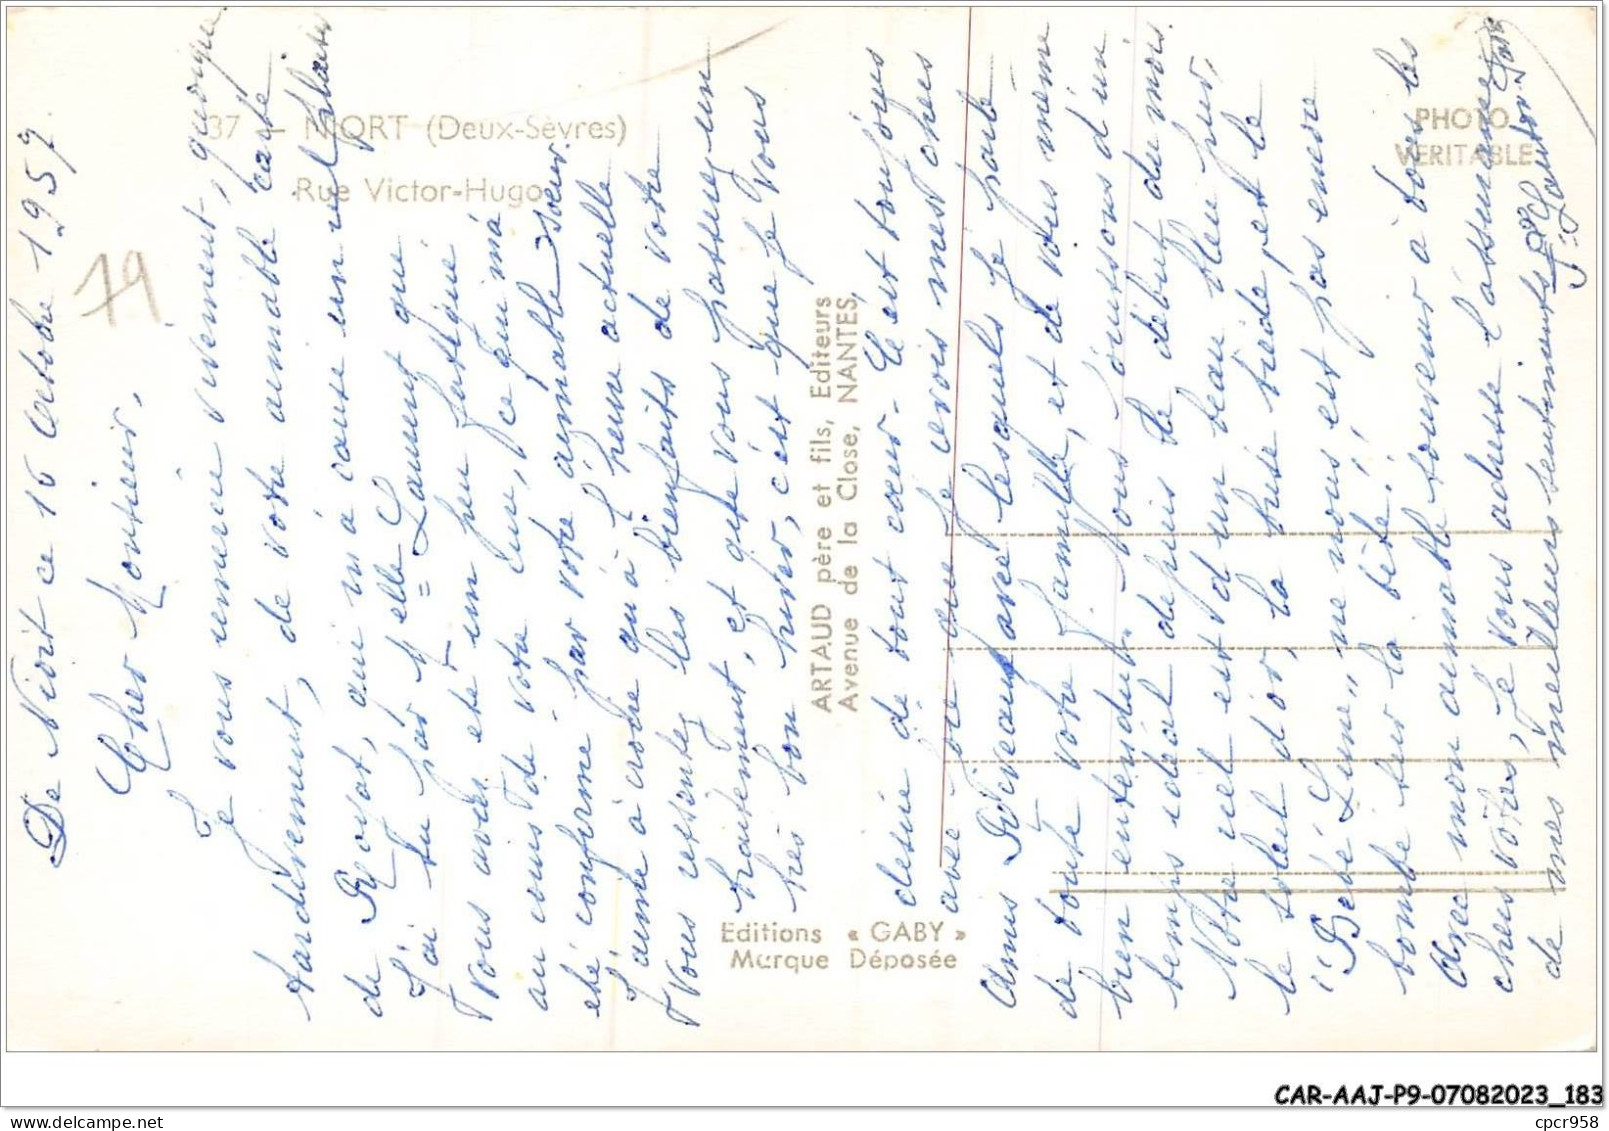 37 - NIORT (Deux-Sèvres)
Rue Victor-Hugo
PHOTO
VERITABLE
ARTAUD père et fils, Editeurs
Avenue de la Close, NANTES,
Editions « GABY »
Marque Déposée
79
De Niort ce 16 Octobre 1957.
Cher Monsieur,
Je vous remercie vivement, quoique
tardivement, de votre aimable carte
de Royat, qui m'a causé un réel plaisir
J'ai su par Melle Laurent que
vous avez été un peu fatigué
au cours de votre cure, ce qui m'a
été confirmé par votre aimable sœur.
J'aime à croire qu'à l'heure actuelle
vous ressentez les bienfaits de votre
traitement, et que vous passerez un
très bon hiver, c'est que je vous
désire de tout cœur. C'est toujours
avec joie que je revois mes chers
amis avec lesquels je parle
de toute votre famille, et de vous même
bien entendu. Nous jouissons d'un
temps idéal depuis le début du mois.
Notre ciel est d'un beau bleu pur,
le soleil d'or, la brise tiède, et le
"Bébé Lune" ne nous est pas encore
tombé sur la tête!
Avec mon aimable souvenir à tous les
chers vôtres, je vous adresse l'assurance
de mes meilleurs sentiments
CAR-AAJ-P9-07082023_183
cpcr958